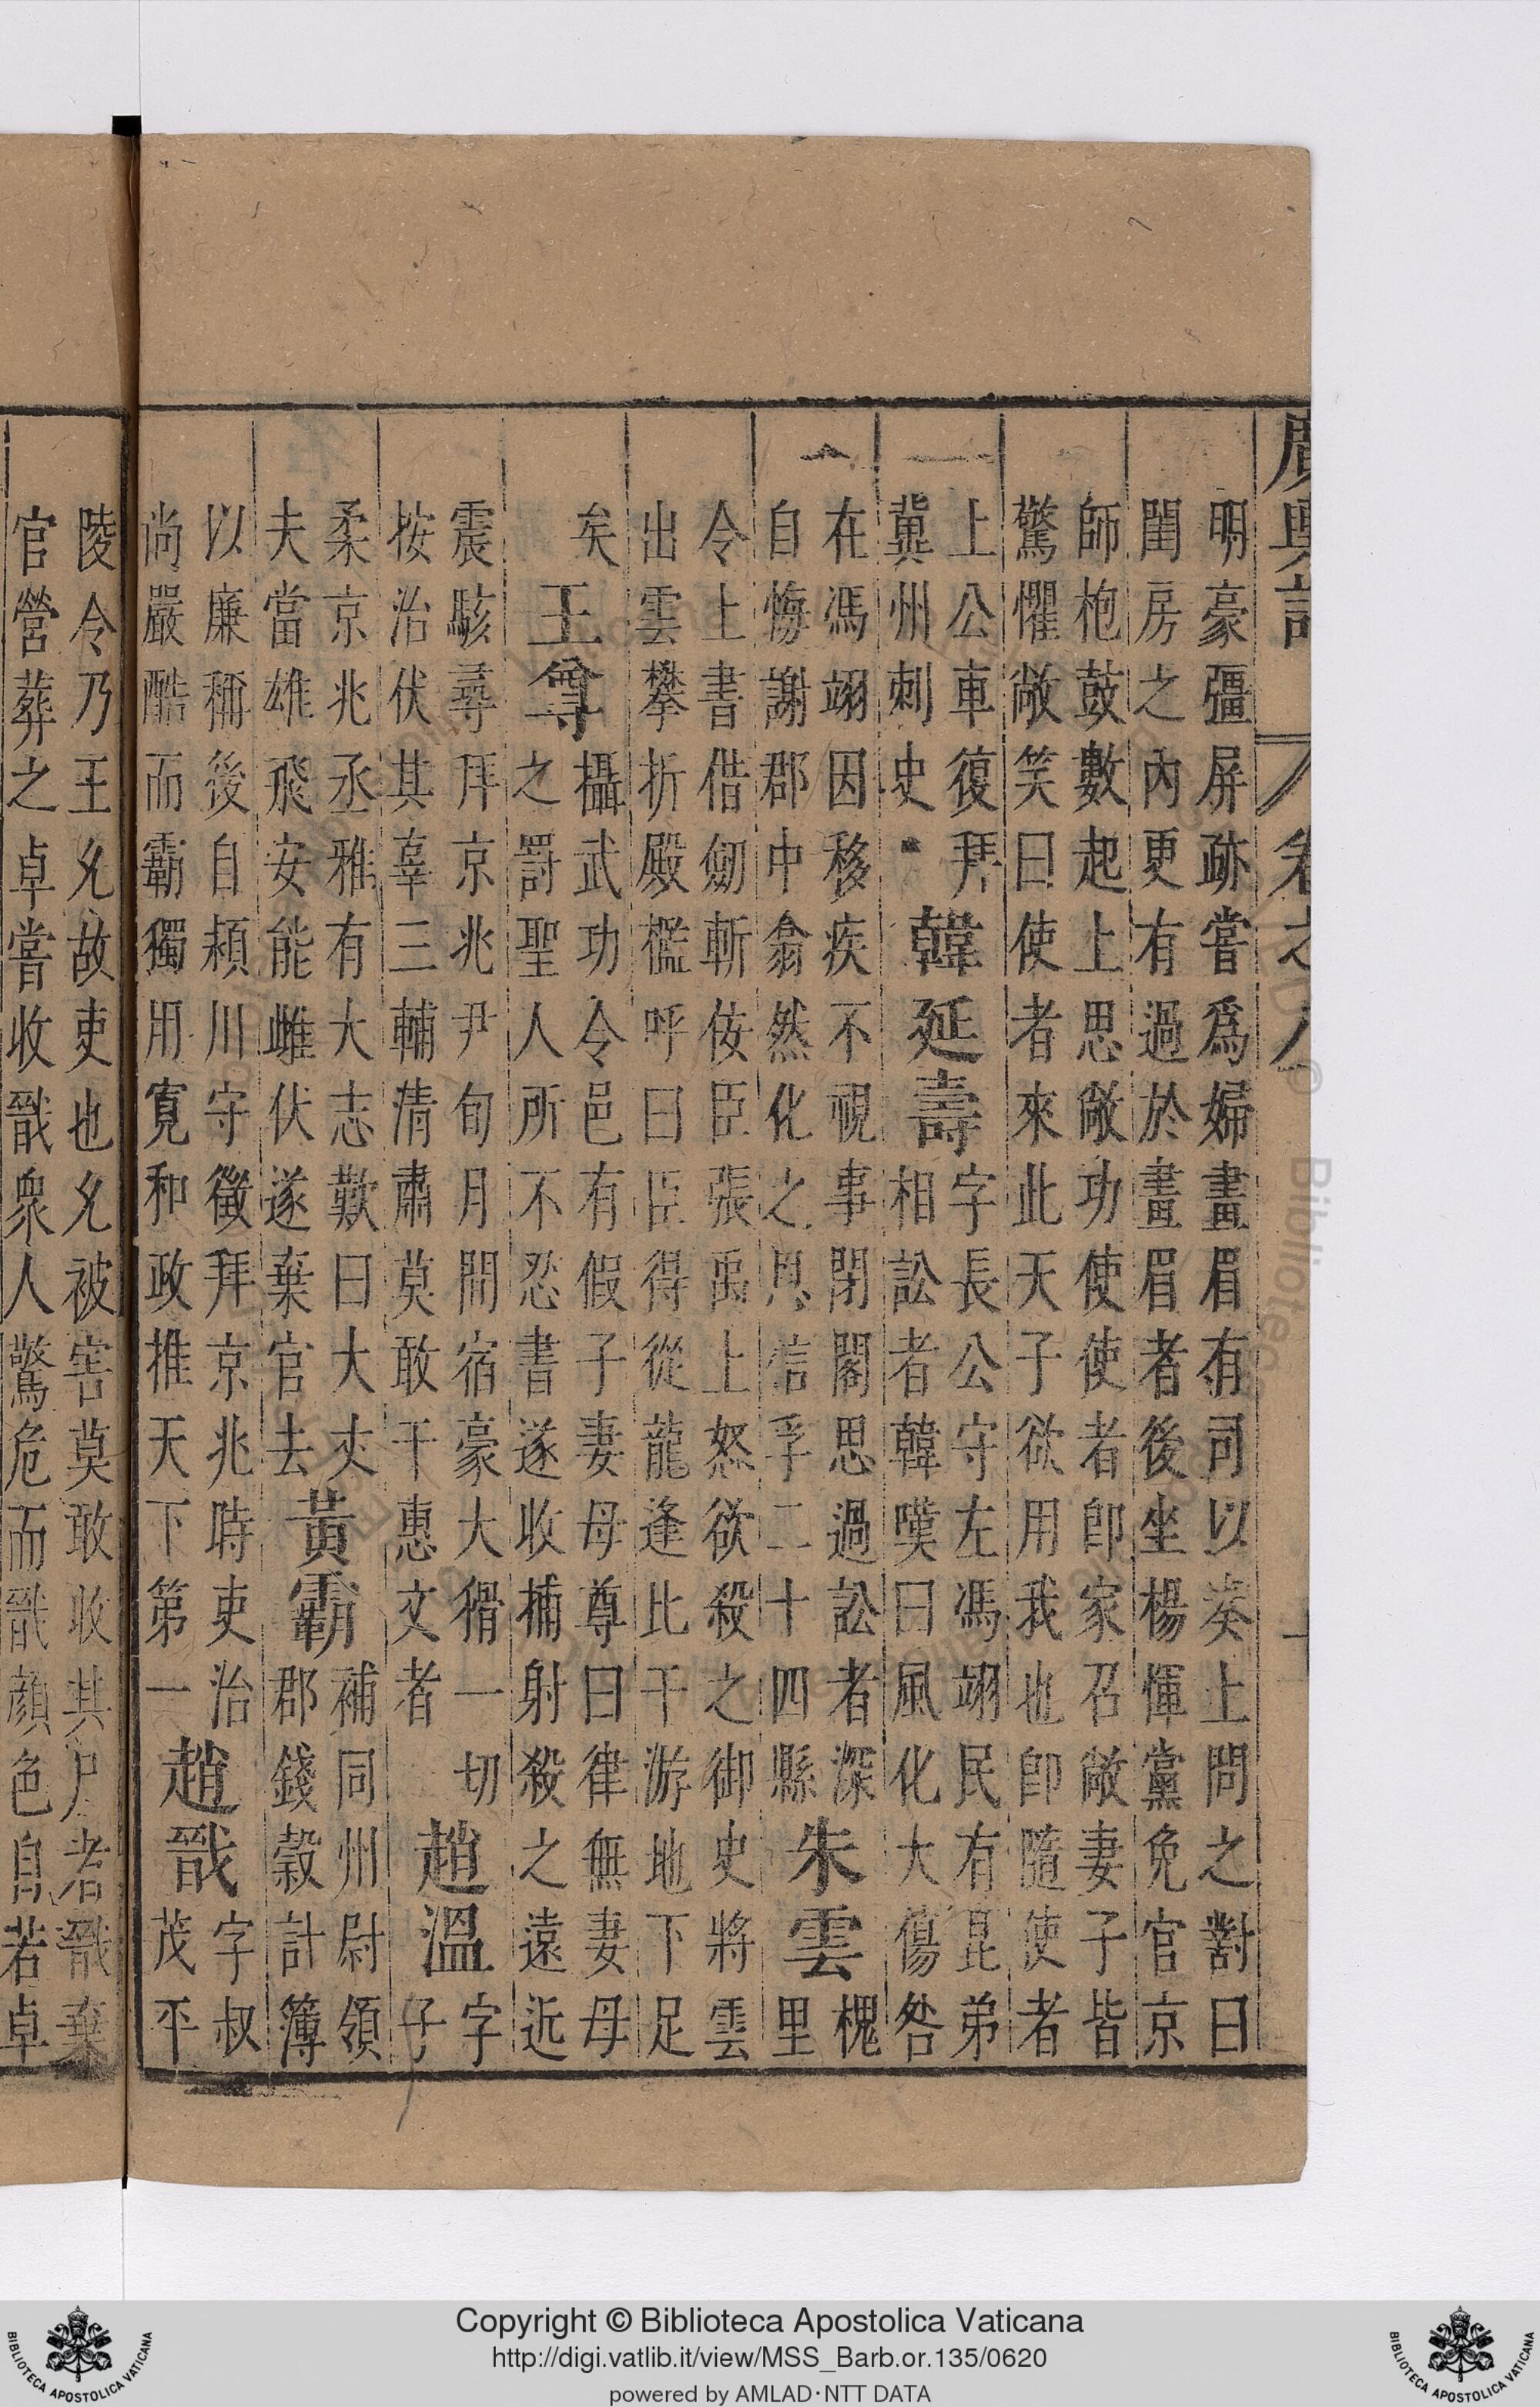 廣輿記 卷之八
明豪彊屏跡嘗爲婦畫眉有司以奏上問之對曰
閨房之內更有過於畫眉者後坐楊惲黨免官京
師枹鼓數起上思敞功使使者卽家召敞妻子皆
驚懼敞笑曰使者來此天子欲用我也卽隨使者
上公車復拜
冀州刺史
韓延壽
字長公守左馮翊民有昆弟
相訟者韓嘆曰風化大傷咎
在馮翊因移疾不視事閉閤思過訟者深
自悔謝郡中翕然化之恩信孚二十四縣
朱雲
槐
里
令上書借劒斬佞臣張禹上怒欲殺之御史將雲
出雲攀折殿檻呼曰臣得從龍逢比干游地下足
矣
王尊
攝武功令邑有假子妻母尊曰律無妻母
之罰聖人所不忍書遂收捕射殺之遠近
震駭尋拜京兆尹旬月間宿豪大猾一切
按治伏其辜三輔清肅莫敢干惠文者
趙溫
字
子
柔京兆丞雅有大志歎曰大丈
夫當雄飛安能雌伏遂棄官去
黃霸
補同州尉領
郡錢穀計簿
以廉稱後自潁川守徵拜京兆時吏治
尚嚴酷而霸獨用寬和政推天下第一
趙戩
字叔
茂平
陵令乃王允故吏也允被害莫敢收其尸者戩棄
官營葬之卓嘗收戩衆人驚危而戩顔色自若卓
Copyright © Biblioteca Apostolica Vaticana
http://digi.vatlib.it/view/MSS_Barb.or.135/0620
powered by AMLAD·NTT DATA
BIBLIOTECA APOSTOLICA VATICANA
BIBLIOTECA APOSTOLICA VATICANA